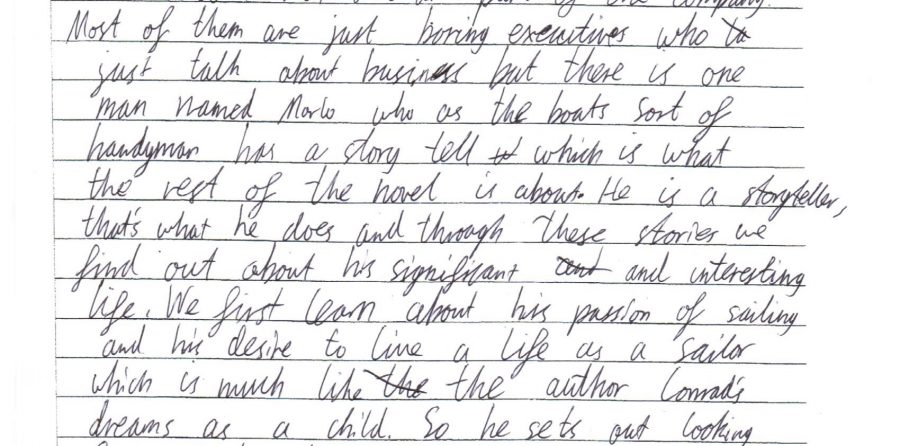 company.
Most of them are just boring executives who
just talk about business but there is one
man named Marlo who as the boats sort of
handyman has a story tell which is what
the rest of the novel is about. He is a storyteller,
that's what he does and through these stories we
find out about his significant and interesting
life. We first learn about his passion of sailing
and his desire to live a life as a sailor
which is much like the the author Conrad's
dreams as a child. So he sets out looking